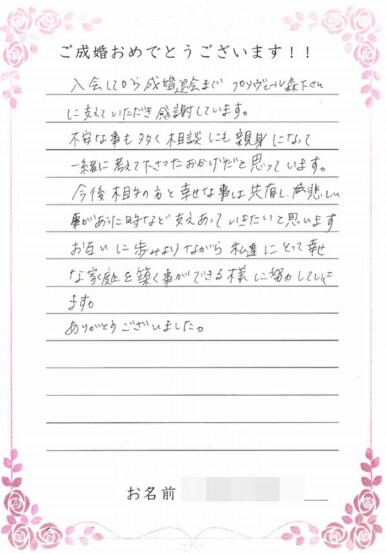 ご成婚おめでとうございます！！
入会してから成婚退会まで フロリヴェール森下さん
に支えていただき感謝しています。
不安な事も多く相談にも親身になって
一緒に考えて下さったおかげだと思っています。
今後相手の方と幸せな事は共有し、悲しい
事があった時など支えあっていきたいと思います
お互いに歩みよりながら私達にとって幸せ
な家庭を築く事ができる様に努力していき
ます。
ありがとうございました。
お名前